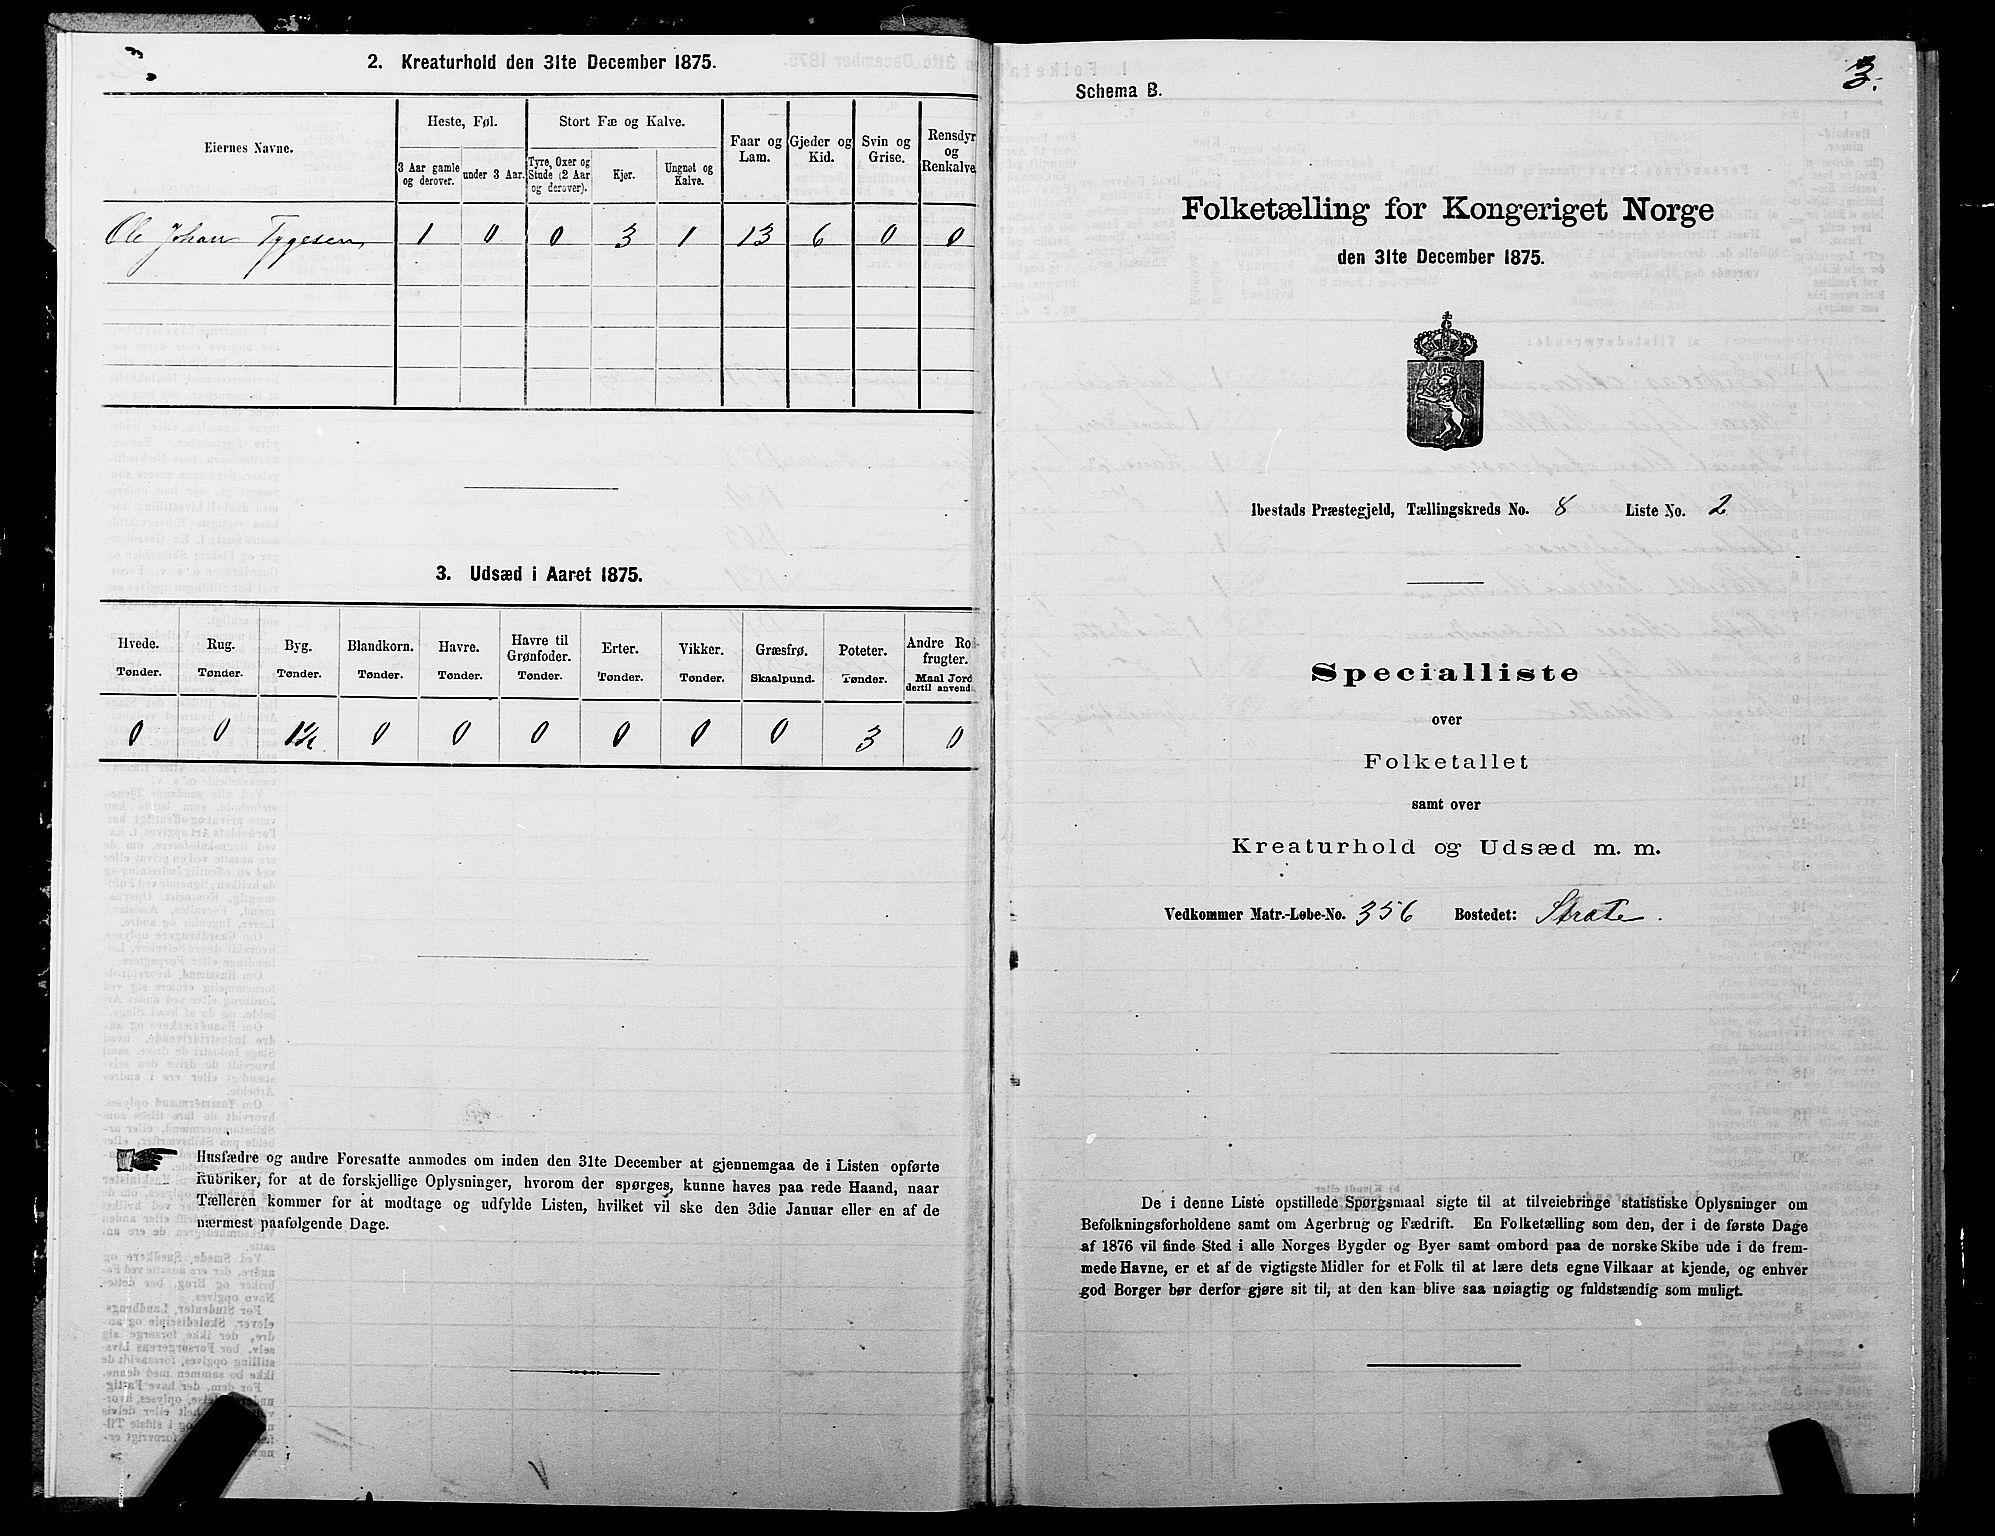 2. Kreaturhold den 31te December 1875.
Eiernes Navne.
Heste, Føl.
Stort Fæ og Kalve.
Faar og Lam.
Gjeder og Kid.
Svin og Grise.
Rensdyr og Renkalve.
3 Aar gamle og derover.
under 3 Aar.
Tyre, Oxer og Stude (2 Aar og derover).
Kjør.
Ungnøt og Kalve.
Ole Johan Tygesen 1 0 0 3 1 13 6 0 0
3. Udsæd i Aaret 1875.
Hvede. Rug. Byg. Blandkorn. Havre. Havre til Grønfoder. Erter. Vikker. Græsfrø. Poteter. Andre Rodfrugter.
Tønder. Tønder. Tønder. Tønder. Tønder. Tønder. Tønder. Tønder. Skaalpund. Tønder. Maal Jord dertil anvendt
0 0 0 0 0 0 0 0 3 0
Husfædre og andre Foresatte anmodes om inden den 31te December at gjennemgaa de i Listen opførte
Rubriker, for at de forskjellige Oplysninger, hvorom der spørges, kunne haves paa rede Haand, naar
Tælleren kommer for at modtage og udfylde Listen, hvilket vil ske den 3die Januar eller en af de
nærmest paafølgende Dage.
3.
Schema B.
Folketælling for Kongeriget Norge
den 31te December 1875.
Ibestads Præstegjeld, Tællingskreds No. 8 Liste No. 2
Specialliste
over
Folketallet
samt over
Kreaturhold og Udsæd m. m.
Vedkommer Matr.-Løbe-No. 356 Bostedet: Stræte.
De i denne Liste opstillede Spørgsmaal sigte til at tilveiebringe statistiske Oplysninger om
Befolkningsforholdene samt om Agerbrug og Fædrift. En Folketælling som den, der i de første Dage
af 1876 vil finde Sted i alle Norges Bygder og Byer samt ombord paa de norske Skibe ude i de frem-
mede Havne, er et af de vigtigste Midler for et Folk til at lære dets egne Vilkaar at kjende, og enhver
god Borger bør derfor gjøre sit til, at den kan blive saa nøiagtig og fuldstændig som muligt.